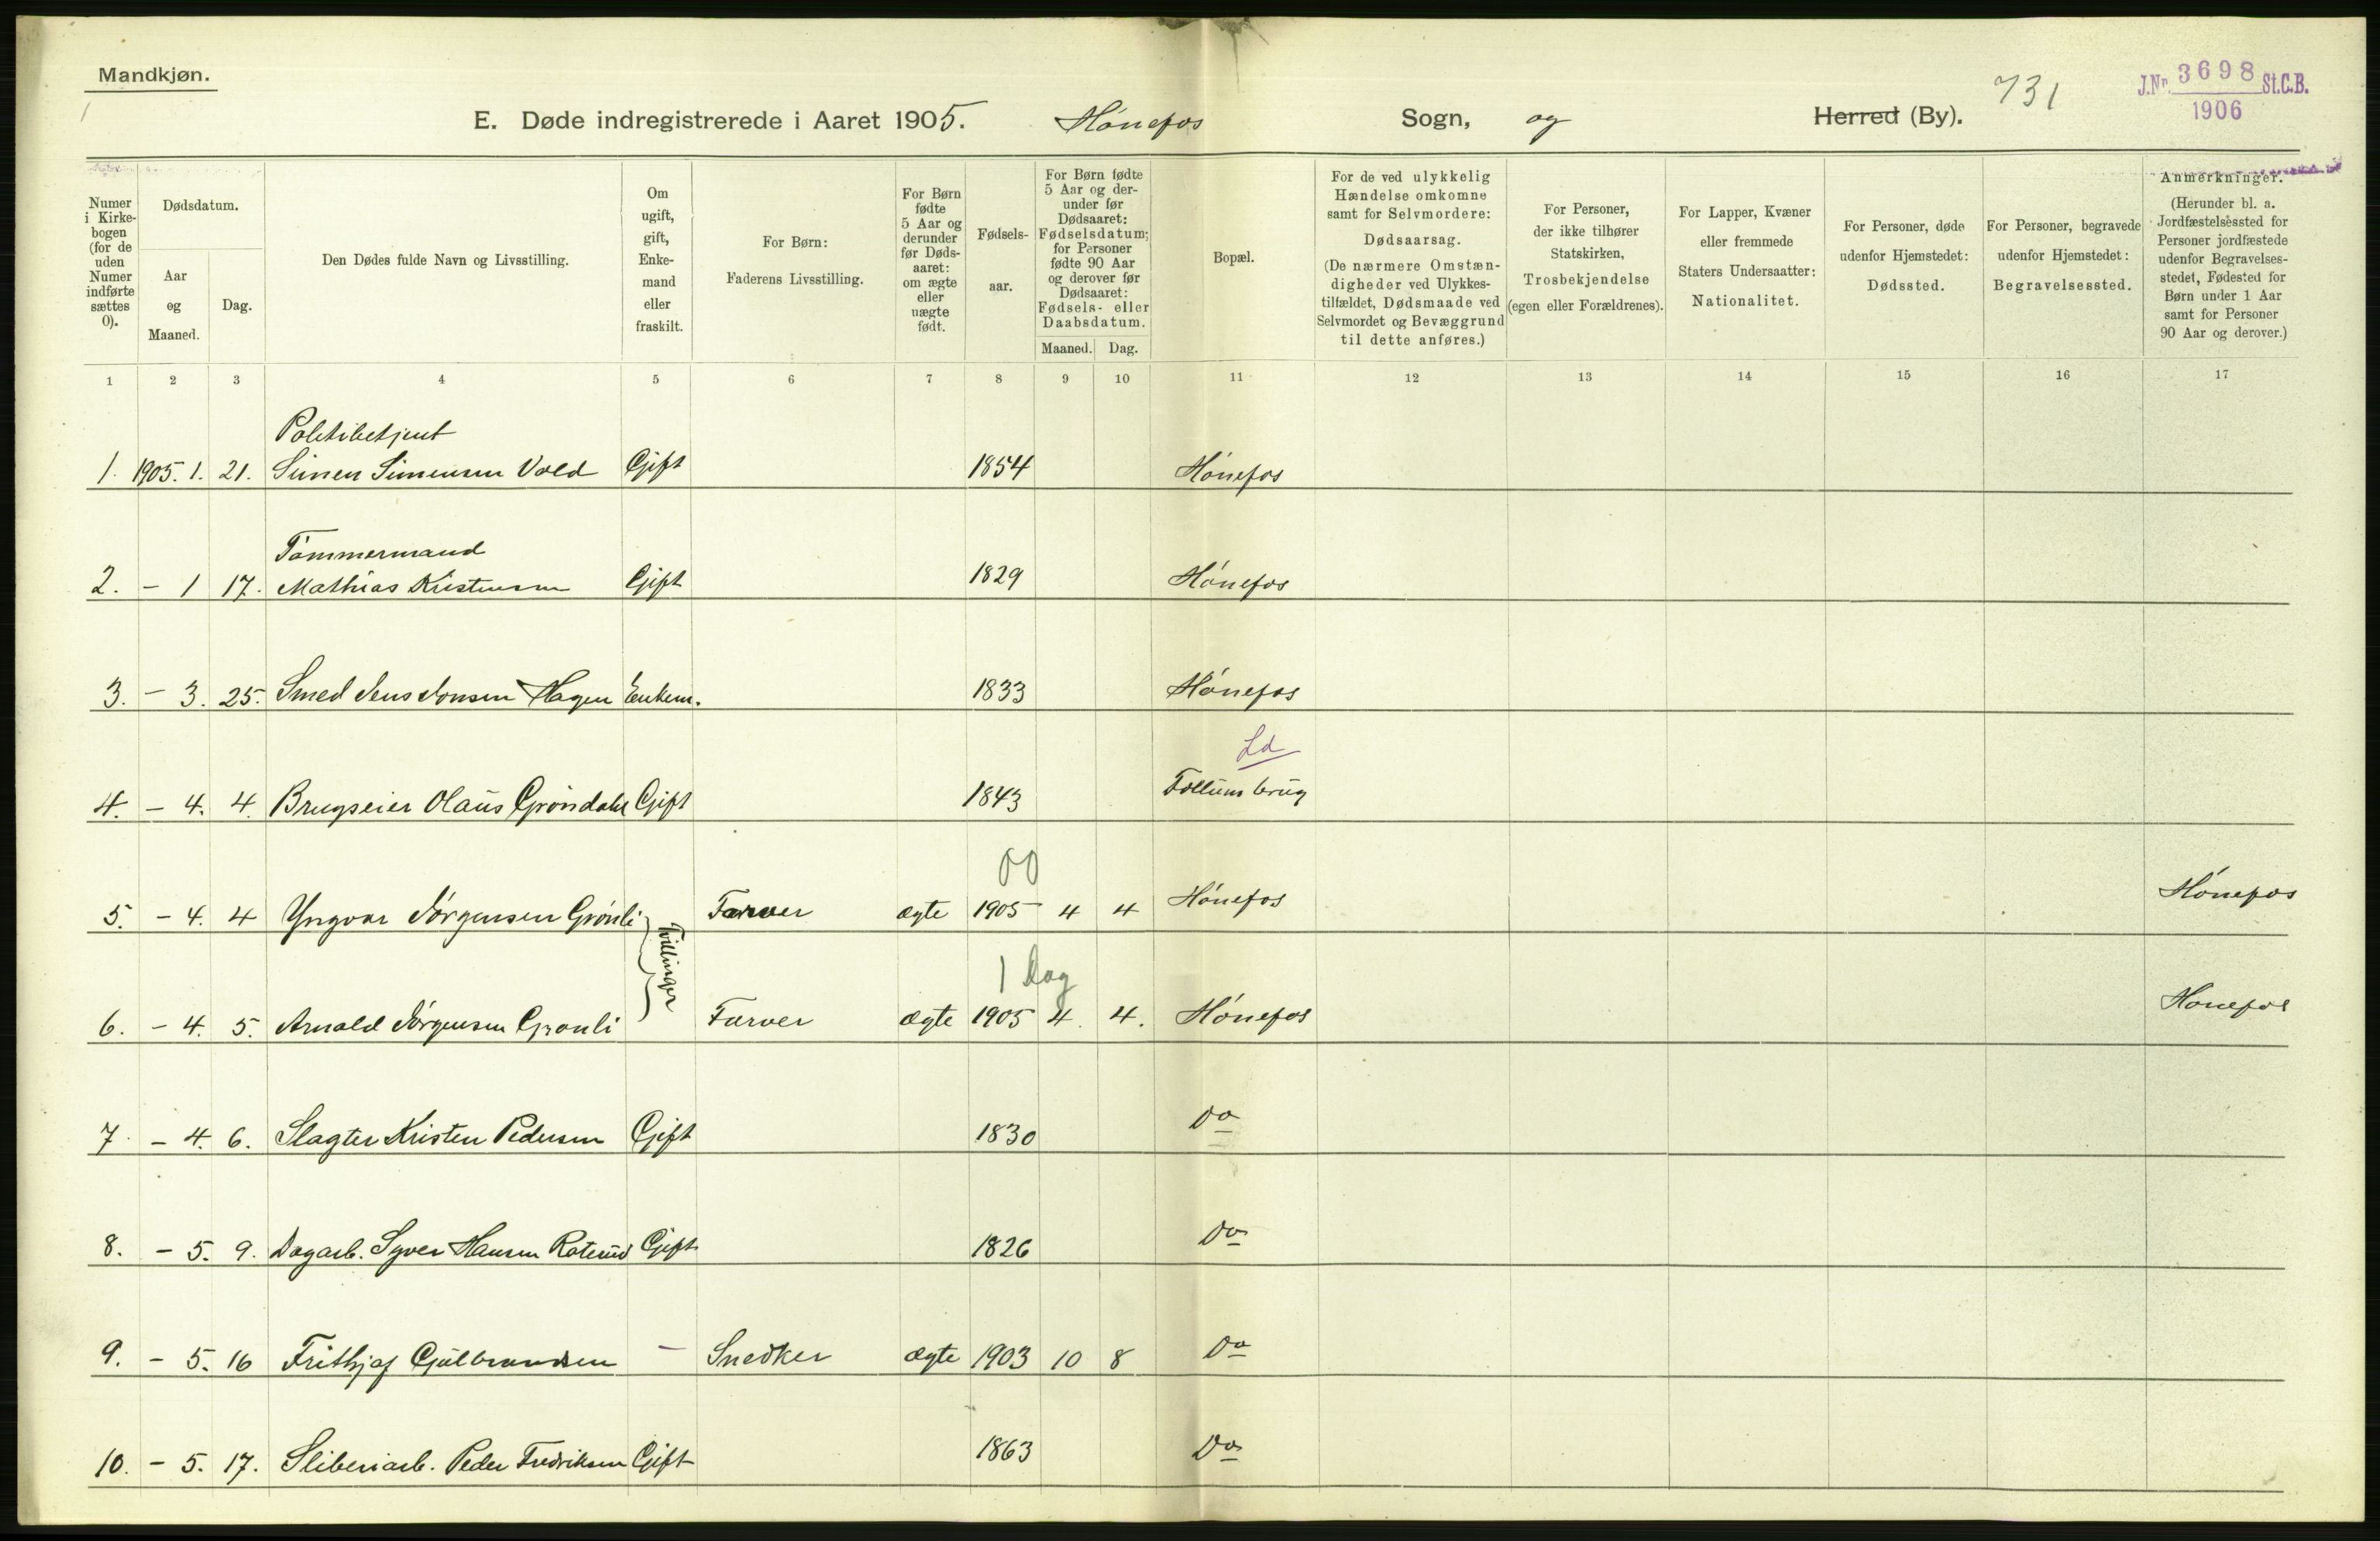 Mandkjøn.
1
E. Døde indregistrerede i Aaret 1905. Hønefos Sogn, og Herred (By). 731
J.Nr. 3698 St.C.B.
1906
Numer i Kirkebogen (for de uden Numer indførte sættes 0).
Dødsdatum.
Aar og Maaned.
Dag.
Den Dødes fulde Navn og Livsstilling.
Om ugift, gift, Enkemand eller fraskilt.
For Børn: Faderens Livsstilling.
For Børn fødte 5 Aar og derunder før Dødsaaret: om ægte eller uægte født.
Fødselsaar.
For Børn fødte 5 Aar og derunder før Dødsaaret: Fødselsdatum; for Personer fødte 90 Aar og derover før Dødsaaret: Fødsels- eller Daabsdatum.
Maaned. Dag.
Bopæl.
For de ved ulykkelig Hændelse omkomne samt for Selvmordere: Dødsaarsag. (De nærmere Omstændigheder ved Ulykkestilfældet, Dødsmaade ved Selvmordet og Bevæggrund til dette anføres.)
For Personer, der ikke tilhører Statskirken, Trosbekjendelse (egen eller Forældrenes).
For Lapper, Kvæner eller fremmede Staters Undersaatter: Nationalitet.
For Personer, døde udenfor Hjemstedet: Dødssted.
For Personer, begravede udenfor Hjemstedet: Begravelsessted.
Anmerkninger. (Herunder bl. a. Jordfæstelsessted for Personer jordfæstede udenfor Begravelsesstedet, Fødested for Børn under 1 Aar samt for Personer 90 Aar og derover.)
1 2 3 4 5 6 7 8 9 10 11 12 13 14 15 16 17
Politibetjent
1. 1905. 1. 21. Simen Simensen Vold Gift 1854 Hønefos
Tømmermand
2. - 1 17. Mathias Kristensen Gift 1829 Hønefos
3. - 3. 25. Smed Jens Jonsen Hagen Enkem. 1833 Hønefos
Ld
4. - 4. 4. Brugseier Olaus Grøndahl Gift 1843 Follum brug
00
5. - 4. 4 Yngvar Jørgensen Grønli Farver ægte 1905 4 4 Hønefos Hønefos
Tvillinger
1 Dag
6. - 4. 5. Arnold Jørgensen Grønli Farver ægte 1905 4. 4. Hønefos Hønefos
7. - 4. 6. Slagter Kristen Pedersen Gift 1830 Do
8. - 5. 9. Dagarb. Syver Hansen Roterud Gift 1826 Do
9. - 5. 16 Frithjof Gulbrandsen - Snedker ægte 1903 10 8 Do
10. - 5. 17. Sliberiarb. Peder Fredriksen Gift 1863 Do